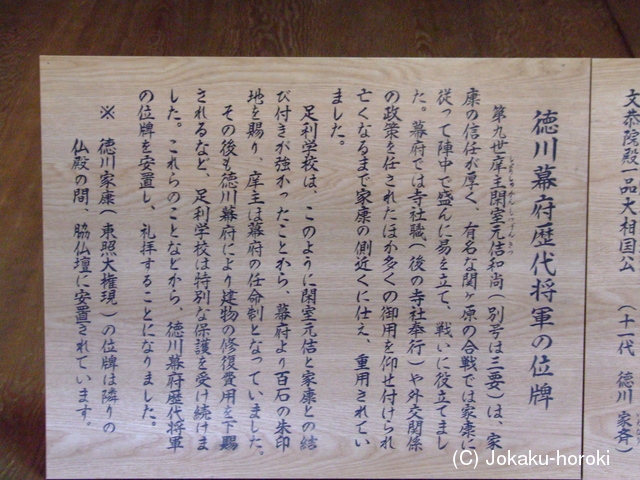 文恭院殿一品大相国公 (十一代 徳川家斉)
徳川幕府歴代将軍の位牌
第九世庠主閑室元佶和尚(別号は三要)は、家
康の信任が厚く、有名な関ヶ原の合戦では家康に
従って陣中で盛んに易を立て、戦いに役立てまし
た。幕府では寺社職(後の寺社奉行)や外交関係
の政策を任されたほか多くの御用を仰せ付けられ
亡くなるまで家康の側近くに仕え、重用されてい
ました。
足利学校は、このように閑室元佶と家康との結
び付きが強かったことから、幕府より百石の朱印
地を賜り、庠主は幕府の任命制となっていました。
その後も徳川幕府により建物の修復費用を下賜
されるなど、足利学校は特別な保護を受け続けま
した。これらのことなどから、徳川幕府歴代将軍
の位牌を安置し、礼拝することになりました。
※ 徳川家康(東照大権現)の位牌は隣りの
仏殿の間、脇仏壇に安置されています。
(C) Jokaku-horoki